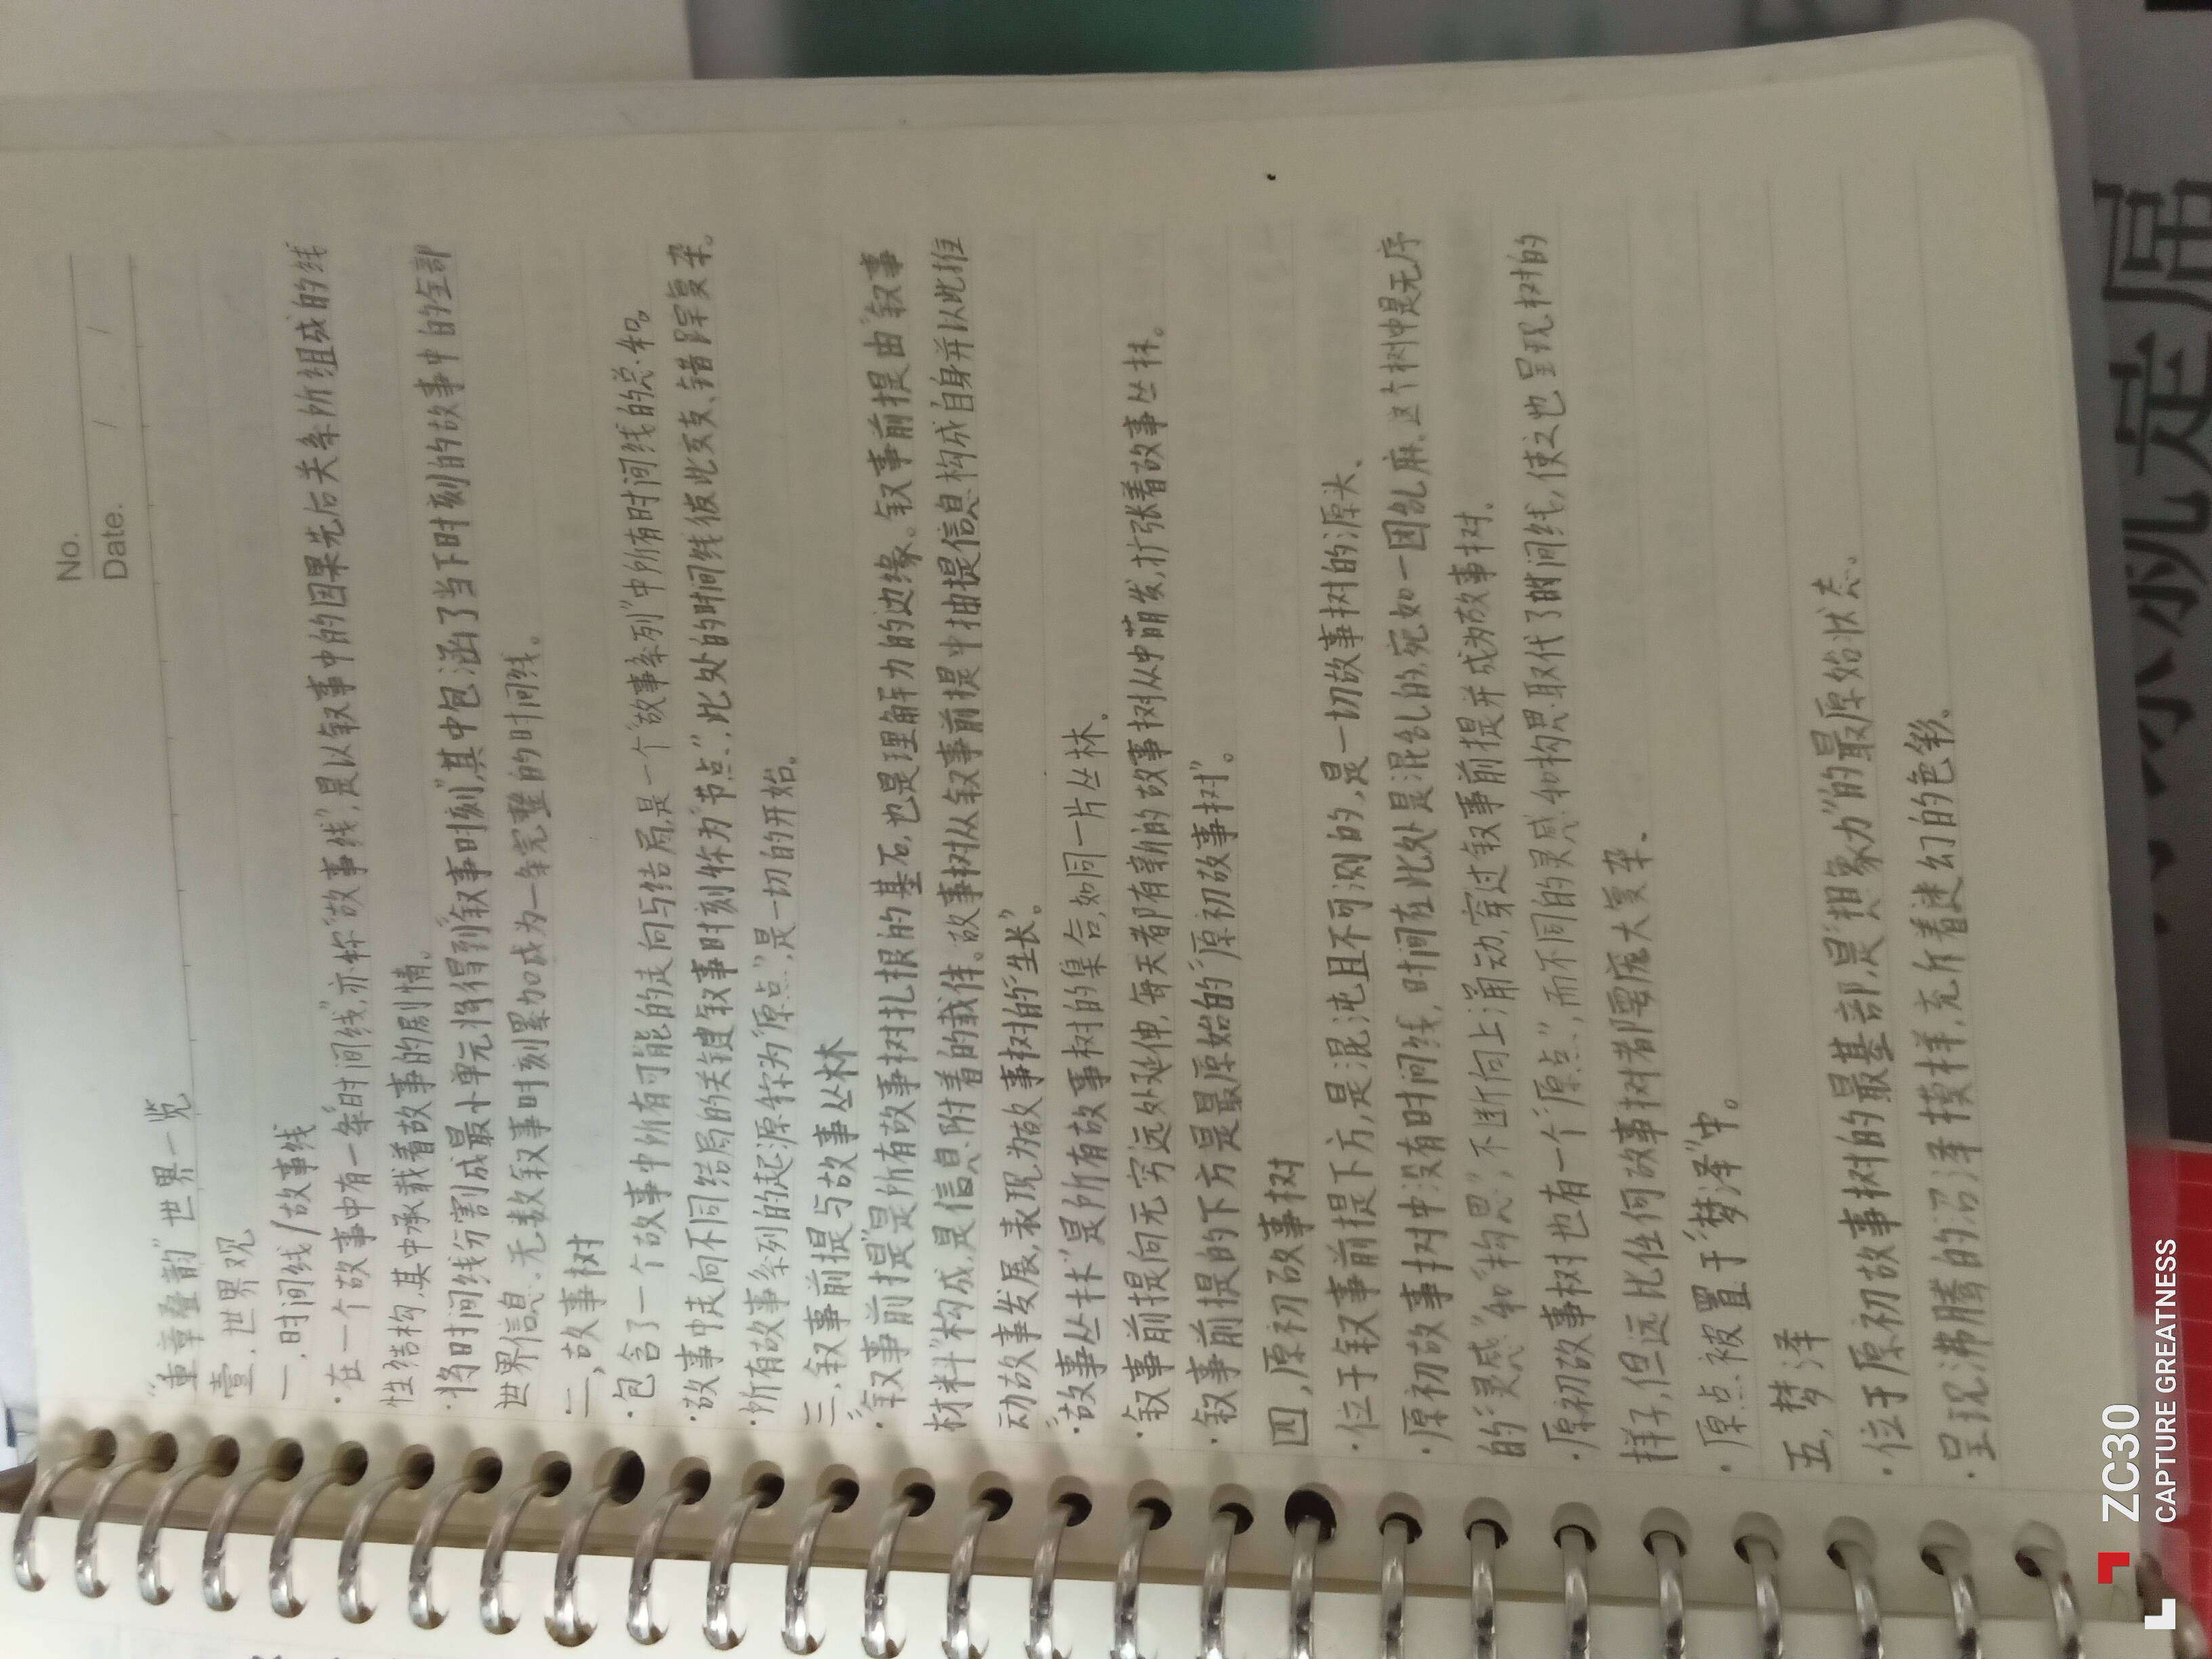 No.
Date. / /
"重章叠韵"世界一览
壹.世界观
一.时间线/故事线
·在一个故事中有一条"时间线",亦称"故事线",是以叙事中的因果先后关系所组成的线
性结构,其中承载着故事的剧情。
·将时间线分割成最小单元将得到"叙事时刻",其中包涵了当下时刻的故事中的全部
世界信息.无数叙事时刻累加成为一条完整的时间线。
二,故事树
·包含了一个故事中所有可能的走向与结局,是一个"故事系列"中所有时间线的总和。
·故事中走向不同结局的关键叙事时刻称为"节点",此处的时间线彼此交支、错踪复杂。
·所有故事系列的起源称为"原点",是一切的开始。
三,叙事前提与故事丛林
·"叙事前提"是所有故事树扎根的基石,也是理解力的边缘。叙事前提由"叙事
材料"构成,是信息附着的载体。故事树从叙事前提中抽提信息构成自身并以此推
动故事发展,表现为故事树的"生长"。
·"故事丛林"是所有故事树的集合,如同一片丛林.
·叙事前提向无穷远处延伸,每天都有新的故事树从中萌发,扩张着故事丛林。
·叙事前提的下方是最原始的"原初故事树"。
四,原初故事树
·位于叙事前提下方,是混沌且不可测的,是一切故事树的源头、
·原初故事树中没有时间线,时间在此处是混乱的,宛如一团乱麻.这个树中是无序
的"灵感"和"构思",不断向上涌动,穿过叙事前提并成为故事树.
·原初故事树也有一个"原点",而不同的灵感和构思取代了时间线,使之也呈现树的
样子,但远比任何故事树都要庞大复杂、
·原点被置于"梦泽"中。
五,梦泽
·位于原初故事树的最基部,是"想象力"的最原始状态。
·呈现沸腾的沼泽摸样,充斥着迷幻的色彩、
ZC30
CAPTURE GREATNESS